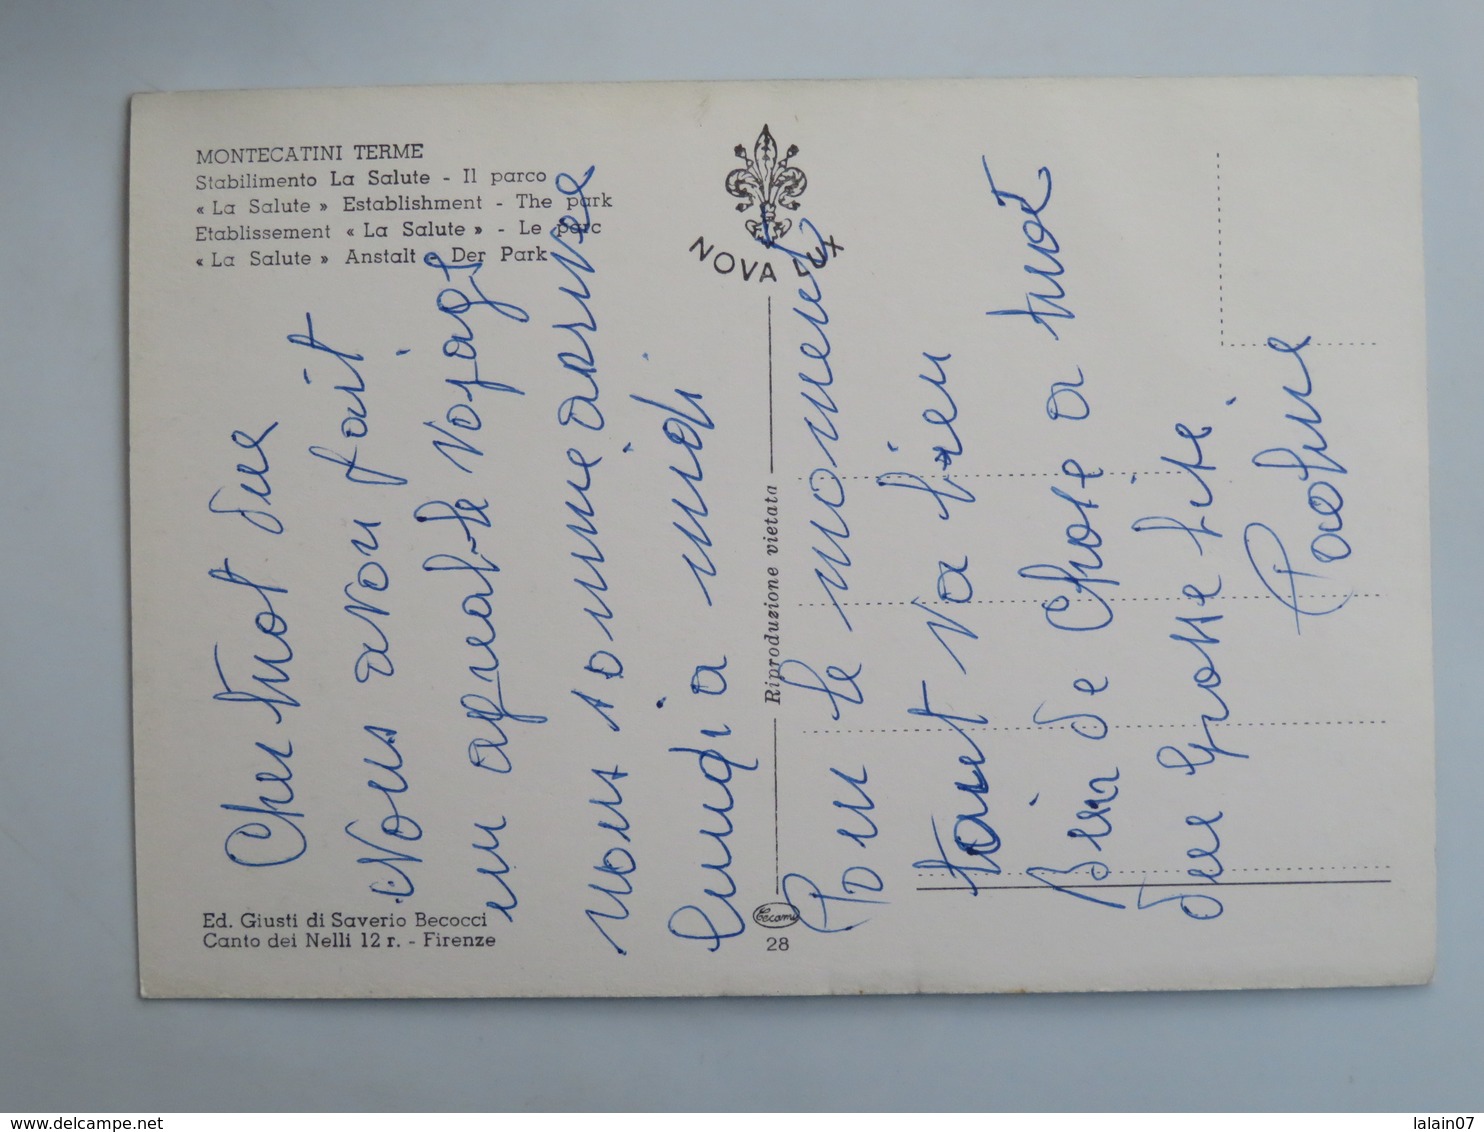 MONTECATINI TERME
Stabilimento La Salute - Il parco
« La Salute » Establishment - The park
Etablissement « La Salute » - Le parc
« La Salute » Anstalt - Der Park
NOVA LUX
Riproduzione vietata
Ed. Giusti di Saverio Becocci
Canto dei Nelli 12 r. - Firenze
Cecami
28
Nous avon fait
un agreable voyage
nous somme arrivee
lundi a midi
Pour le moment
tout va bien
Bien de Chose a
une Grosse bise
delcampe.net
lalain07